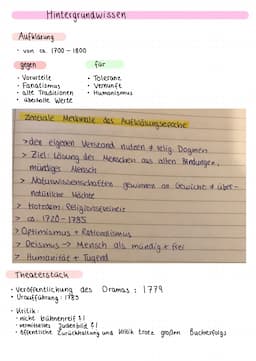 Hintergrundwissen
Aufklärung
• von ca. 1700 - 1800
gegen
für
• Vorurteile
• Toleranz
• Fanatismus
• Vernunft
• alte Traditionen
• Humanismus
• überholte Werte
Zentrale Merkmale der Aufklärungsepoche
> den eigenen Verstand nutzen ≠ relig. Dogmen
> Ziel: Lösung des Menschen aus alten Bindungen,
mündiges Mensch
> Naturwissenschaften gewinnen an Gewicht ≠ über-
natürliche Mächte
> Religionsfreiheit
> ca. 1720 - 1785
> Optimismus + Rationalismus
> Deismus → Mensch als mündig + frei
> Humanität + Tugend
Theaterstück
• Veröffentlichung des Dramas: 1779
• Uraufführung: 1783
• Kritik:
• nicht bühnenreif
• Judenbild
• öffentliche Zurückhaltung und Kritik trotz großem Bucherfolgs